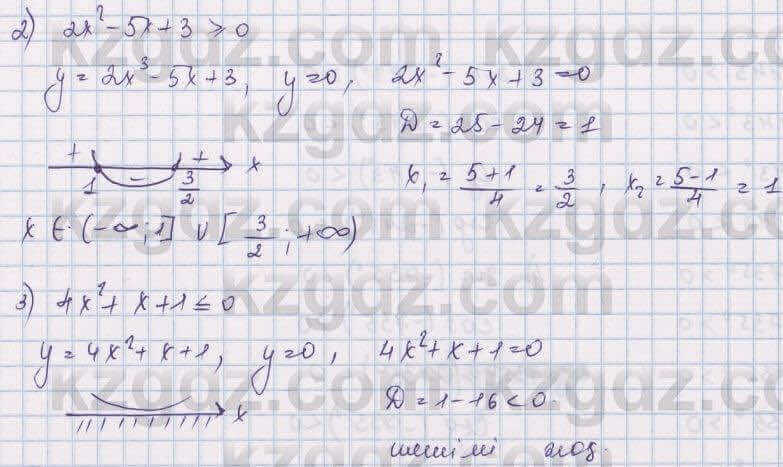 2) 2x² - 5x + 3 ≥ 0
y = 2x³ - 5x + 3, y=0, 2x² - 5x + 3 = 0
D = 25 - 24 = 1
+ - + x
1 3/2
x₁ = (5+1)/4 = 3/2, x₂ = (5-1)/4 = 1
x ∈ (-∞; 1] ∪ [3/2; +∞)
3) 4x² + x + 1 ≤ 0
y = 4x² + x + 1, y=0, 4x² + x + 1 = 0
x
D = 1 - 16 < 0.
шешімі жоқ.
kzgdz.com